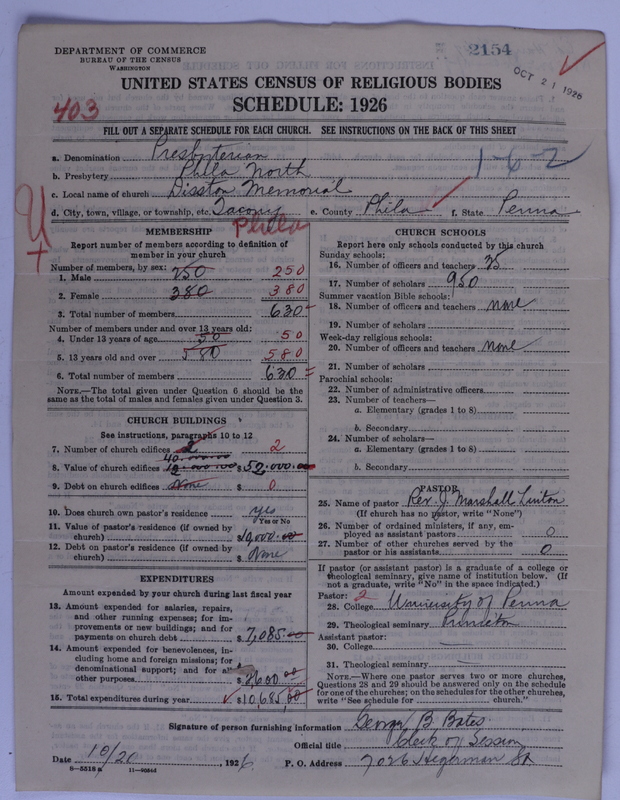 DEPARTMENT OF COMMERCE
BUREAU OF THE CENSUS
WASHINGTON
2154
OCT 21 1926
UNITED STATES CENSUS OF RELIGIOUS BODIES
SCHEDULE: 1926
403
FILL OUT A SEPARATE SCHEDULE FOR EACH CHURCH. SEE INSTRUCTIONS ON THE BACK OF THIS SHEET
a. Denomination Presbyterian
b. Presbytery Phila North 1-6-2
c. Local name of church Disston Memorial
d. City, town, village, or township, etc. Tacony e. County Phila f. State Penna
Phila
MEMBERSHIP
Report number of members according to definition of
member in your church
Number of members, by sex:
1. Male 250 250
2. Female 380 380
3. Total number of members 630
Number of members under and over 13 years old:
4. Under 13 years of age 50 50
5. 13 years old and over 580 580
6. Total number of members 630
NOTE.—The total given under Question 6 should be the
same as the total of males and females given under Question 3.
CHURCH BUILDINGS
See instructions, paragraphs 10 to 12
7. Number of church edifices 2 2
8. Value of church edifices $52,000.00
9. Debt on church edifices None $ 0
10. Does church own pastor's residence yes
Yes or No
11. Value of pastor's residence (if owned by
church)
12. Debt on pastor's residence (if owned by
church) $ None
EXPENDITURES
Amount expended by your church during last fiscal year
13. Amount expended for salaries, repairs,
and other running expenses; for im-
provements or new buildings; and for
payments on church debt $7,085.00
14. Amount expended for benevolences, in-
cluding home and foreign missions; for
denominational support; and for all
other purposes $3600.00
15. Total expenditures during year $10,685.00
CHURCH SCHOOLS
Report here only schools conducted by this church
Sunday schools:
16. Number of officers and teachers 75
17. Number of scholars 950
Summer vacation Bible schools:
18. Number of officers and teachers none
19. Number of scholars
Week-day religious schools:
20. Number of officers and teachers none
21. Number of scholars
Parochial schools:
22. Number of administrative officers
23. Number of teachers—
a. Elementary (grades 1 to 8)
b. Secondary
24. Number of scholars—
a. Elementary (grades 1 to 8)
b. Secondary
PASTOR
25. Name of pastor Rev. J. Marshall Linton
(If church has no pastor, write "None")
26. Number of ordained ministers, if any, em-
ployed as assistant pastors 0
27. Number of other churches served by the
pastor or his assistants 0
If pastor (or assistant pastor) is a graduate of a college or
theological seminary, give name of institution below. (If
not a graduate, write "No" in the space indicated.)
Pastor: 2
28. College University of Penna
29. Theological seminary Princeton
Assistant pastor:
30. College
31. Theological seminary
NOTE.—Where one pastor serves two or more churches,
Questions 28 and 29 should be answered only on the schedule
for one of the churches; on the schedules for the other churches,
write "See schedule for church."
Signature of person furnishing information George B Bates
Official title Clerk of Session
Date 10/20, 1926 P. O. Address 7026 Hegerman St
8—5518a 11—9054d